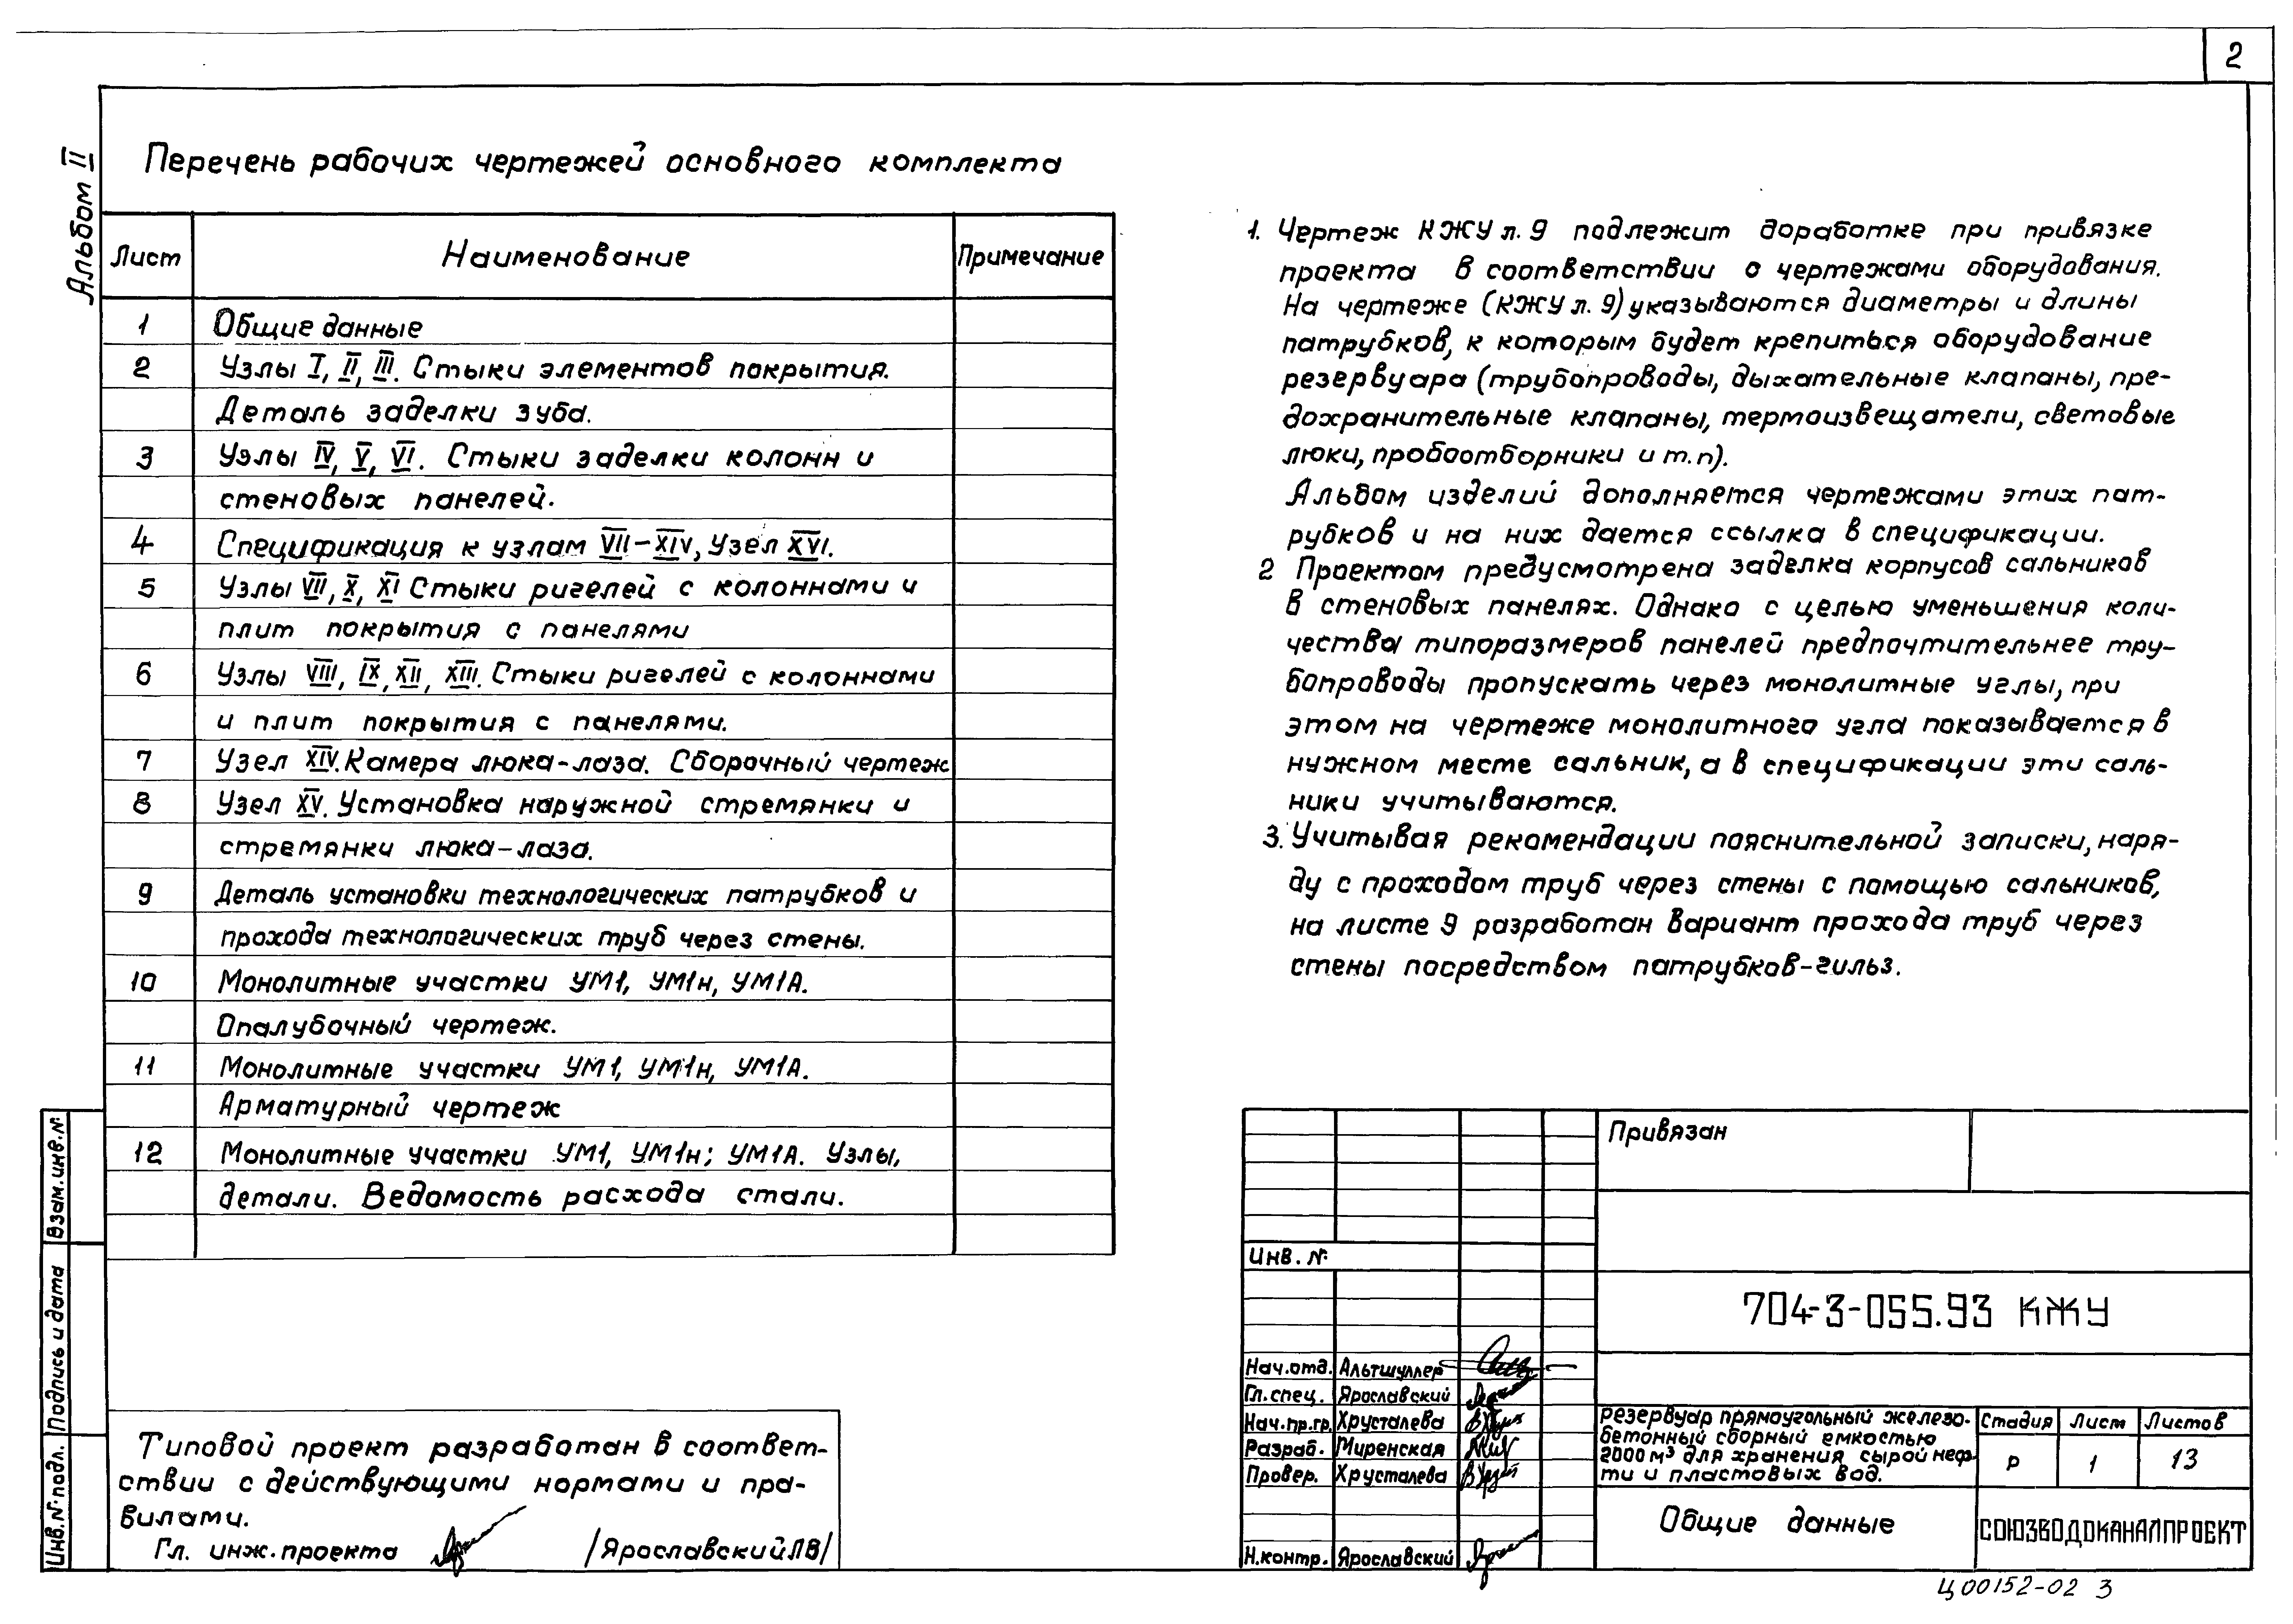 2
Альбом II
Перечень рабочих чертежей основного комплекта
Лист Наименование Примечание
1 Общие данные
2 Узлы I, II, III. Стыки элементов покрытия.
Деталь заделки зуба.
3 Узлы IV, V, VI. Стыки заделки колонн и
стеновых панелей.
4 Спецификация к узлам VII-XIV, Узел XVI.
5 Узлы VII, X, XI Стыки ригелей с колоннами и
плит покрытия с панелями
6 Узлы VIII, IX, XII, XIII. Стыки ригелей с колоннами
и плит покрытия с панелями.
7 Узел XIV. Камера люка-лаза. Сборочный чертеж
8 Узел XV. Установка наружной стремянки и
стремянки люка-лаза.
9 Деталь установки технологических патрубков и
прохода технологических труб через стены.
10 Монолитные участки УМ1, УМ1н, УМ1А.
Опалубочный чертеж.
11 Монолитные участки УМ1, УМ1н, УМ1А.
Арматурный чертеж
12 Монолитные участки УМ1, УМ1н; УМ1А. Узлы,
детали. Ведомость расхода стали.
1. Чертеж КЖУ л. 9 подлежит доработке при привязке
проекта в соответствии с чертежами оборудования.
На чертеже (КЖУ л. 9) указываются диаметры и длины
патрубков, к которым будет крепиться оборудование
резервуара (трубопроводы, дыхательные клапаны, пре-
дохранительные клапаны, термоизвещатели, световые
люки, пробоотборники и т.п).
Альбом изделий дополняется чертежами этих пат-
рубков и на них дается ссылка в спецификации.
2 Проектом предусмотрена заделка корпусов сальников
в стеновых панелях. Однако с целью уменьшения коли-
чества типоразмеров панелей предпочтительнее тру-
бопроводы пропускать через монолитные углы, при
этом на чертеже монолитного угла показывается в
нужном месте сальник, а в спецификации эти саль-
ники учитываются.
3. Учитывая рекомендации пояснительной записки, наря-
ду с проходом труб через стены с помощью сальников,
на листе 9 разработан вариант прохода труб через
стены посредством патрубков-гильз.
Взам. инв. №
Подпись и дата
Инв. № подл.
Типовой проект разработан в соответ-
ствии с действующими нормами и пра-
вилами.
Гл. инж. проекта /Ярославский ЛВ/
Привязан
Инв. №
704-3-055.93 КЖУ
Нач. отд. Альтшуллер
Гл. спец. Ярославский
Нач. пр. гр. Хрусталева
Разраб. Миренская
Провер. Хрусталева
Н. контр. Ярославский
Резервуар прямоугольный железо-
бетонный сборный емкостью
2000 м³ для хранения сырой неф-
ти и пластовых вод.
Стадия Лист Листов
Р 1 13
Общие данные
СОЮЗВОДОКАНАЛПРОЕКТ
Ц00152-02 3